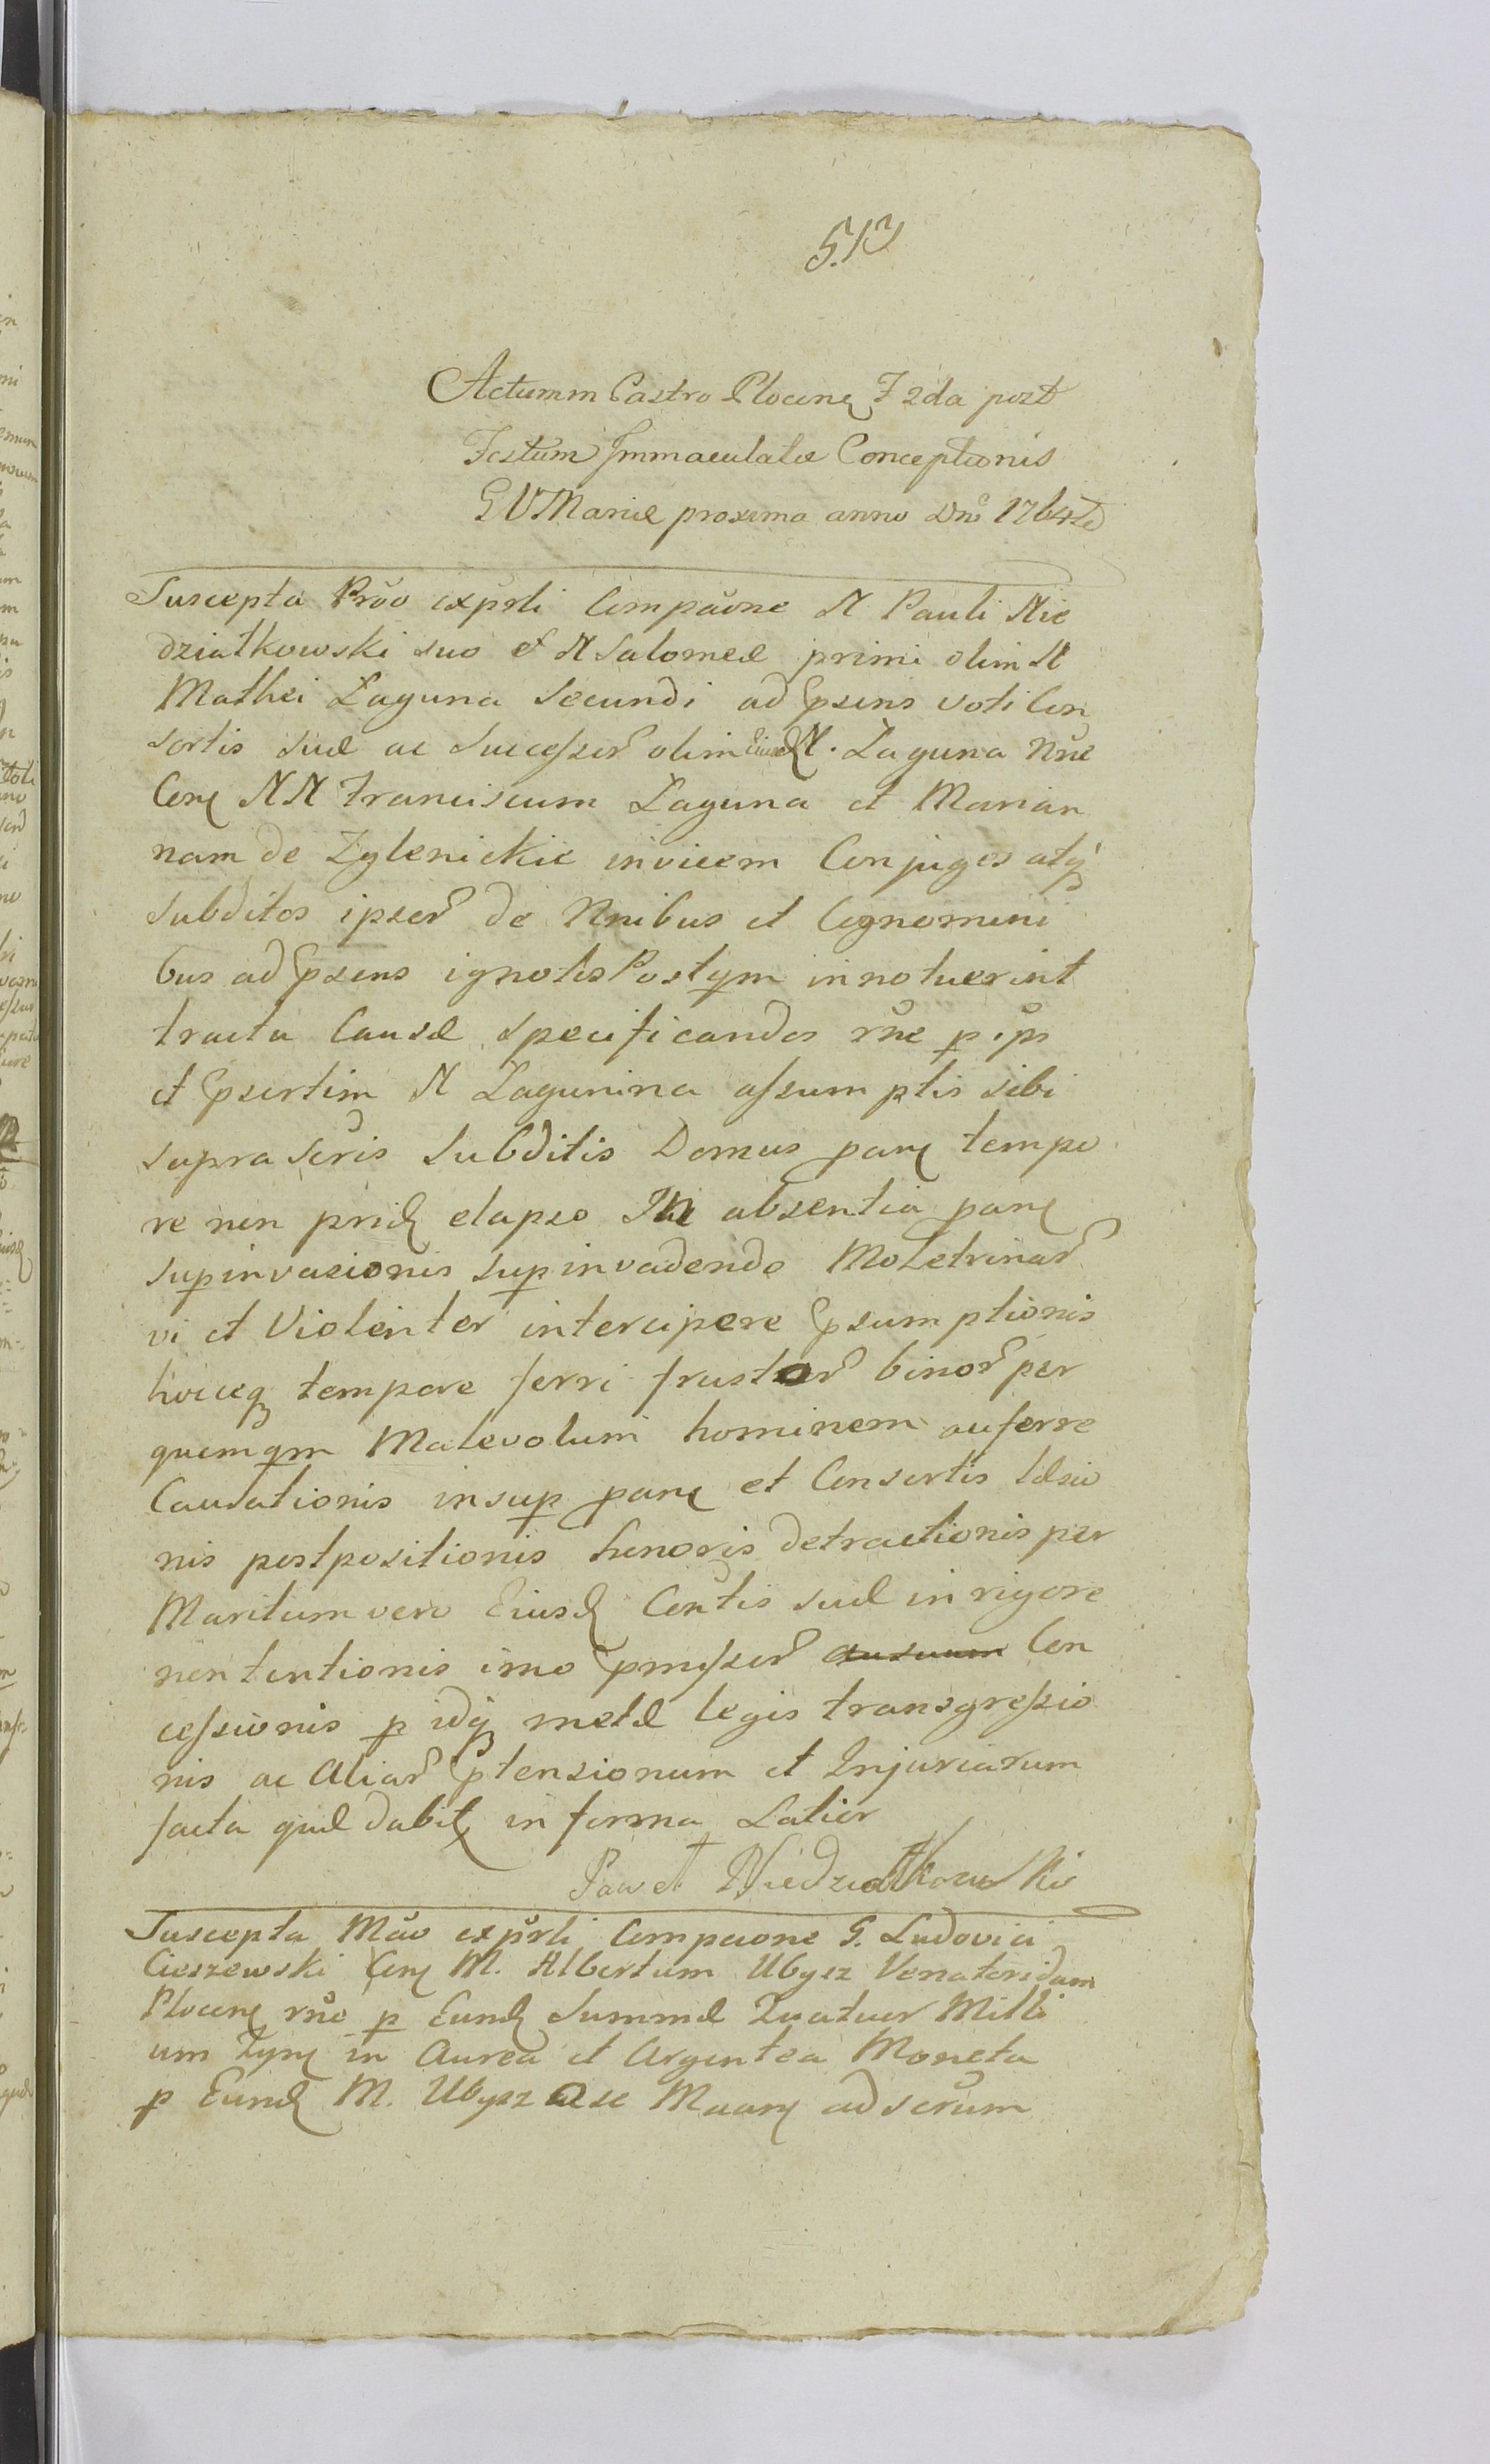 513
Actum in Castro Plocen F 2da post
Festum Immaculatæ Conceptionis
G V Mariæ proxima anno Dni 1764to
Suscepta Prôo exprsli Compaone N Pauli Nie
dziatkowski suo et N Salomeæ primi olim N
Mathei Laguna Secundi ad psens voti Con
sortis suæ ac Successor olim Eiusd N. Laguna Nne
Con NN Franciscum Laguna et Marian
nam de Zglenickie invicem Conjuges atq
Subditos ipsor de Nnibus et Cognomini
bus ad psens ignotis Postqm innotuerint
tractu Causæ specificandos rne p ips
et psertim N Lagunina assumptis sibi
supra scris Subditis Domus pane tempo
re non prid elapso In absentia pane
supinvasionis supinvadendo Moletrinar
vi et Violenter intercipere psumptionis
hocceq tempore ferri frustor binor per
quemqm Malevolum hominem auferre
Causationis insup pane et Consortis læsio
nis postpositionis honoris detractionis per
Maritum vero Eiusd Contis suæ in rigore
non tentionis imo pmissor Con
cessionis p idq metæ legis transgressio
nis ac Aliar ptensionum et Injuriarum
facta quæ dabit in forma Latior
Paweł Niedziałkowski
Suscepta Môo exprsli Compaone G. Ludovici
Cieszewski Con M. Albertum Ubysz Venatoridam
Plocen rne p Eund Summæ Quatuor Milli
um flyn in Aurea et Argentea Moneta
p Eund M. Ubysz a se Muan ad scrum